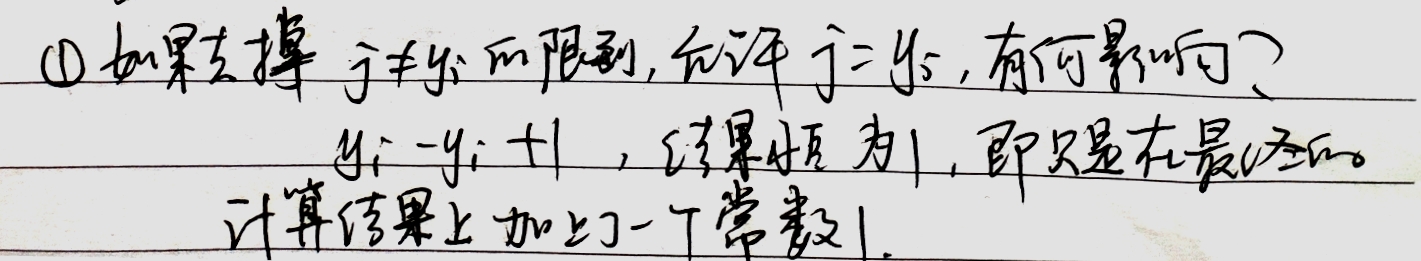 ① 如果去掉 j≠yi 的限制, 允许 j=yi, 有何影响?
yi-yi+1, 结果恒为1, 即只是在最终的
计算结果上加上了一个常数1.